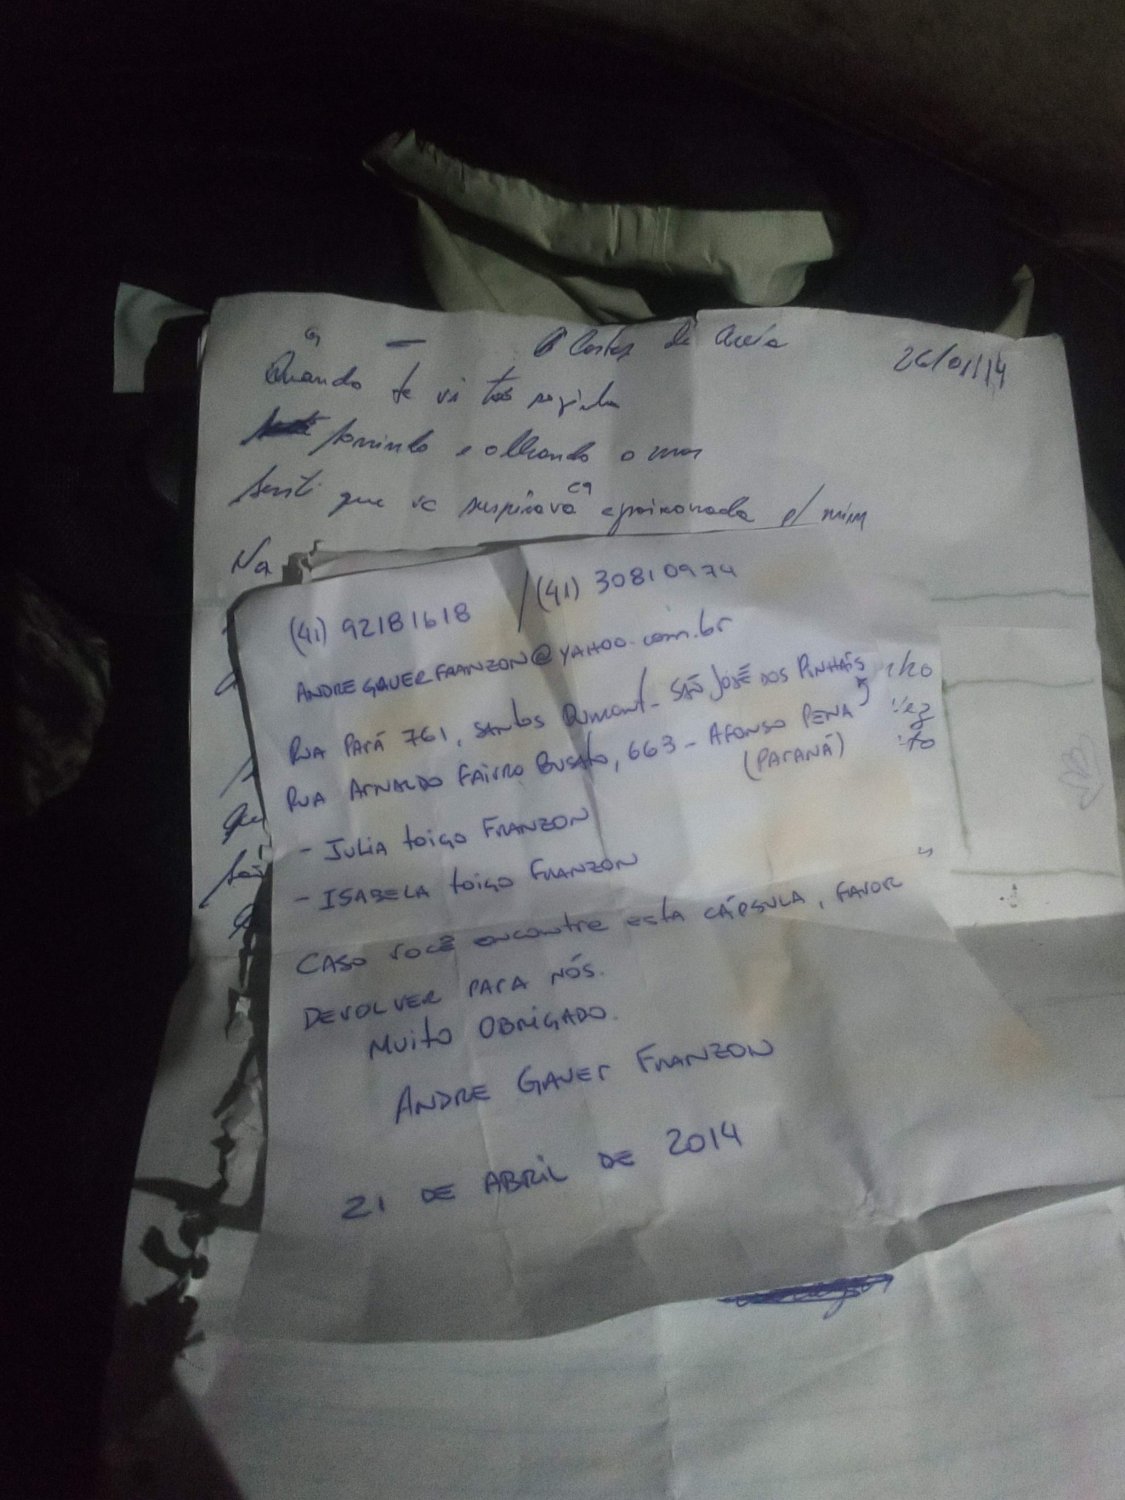 26/01/14
Quando te vi tão sozinha
sorrindo e olhando o mar
Senti que vc suspirava apaixonada p/ mim
Na
(41) 92181618 / (41) 30810974
ANDREGAUERFRANZON@YAHOO.com.br
RUA PARÁ 761, SANTOS DUMONT - SÃO JOSÉ DOS PINHAIS
RUA ARNALDO FAIVRO BUSATO, 663 - AFONSO PENA
(PARANÁ)
- JULIA TOIGO FRANZON
- ISABELA TOIGO FRANZON
CASO VOCÊ ENCONTRE ESTA CÁPSULA, FAVOR
DEVOLVER PARA NÓS.
MUITO OBRIGADO.
ANDRE GAUER FRANZON
21 DE ABRIL DE 2014